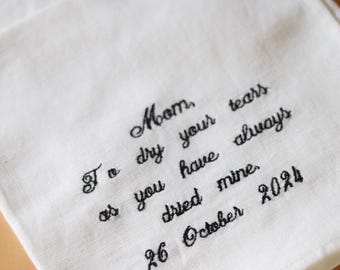 Mom,
To dry your tears
as you have always
dried mine.
26 October 2024